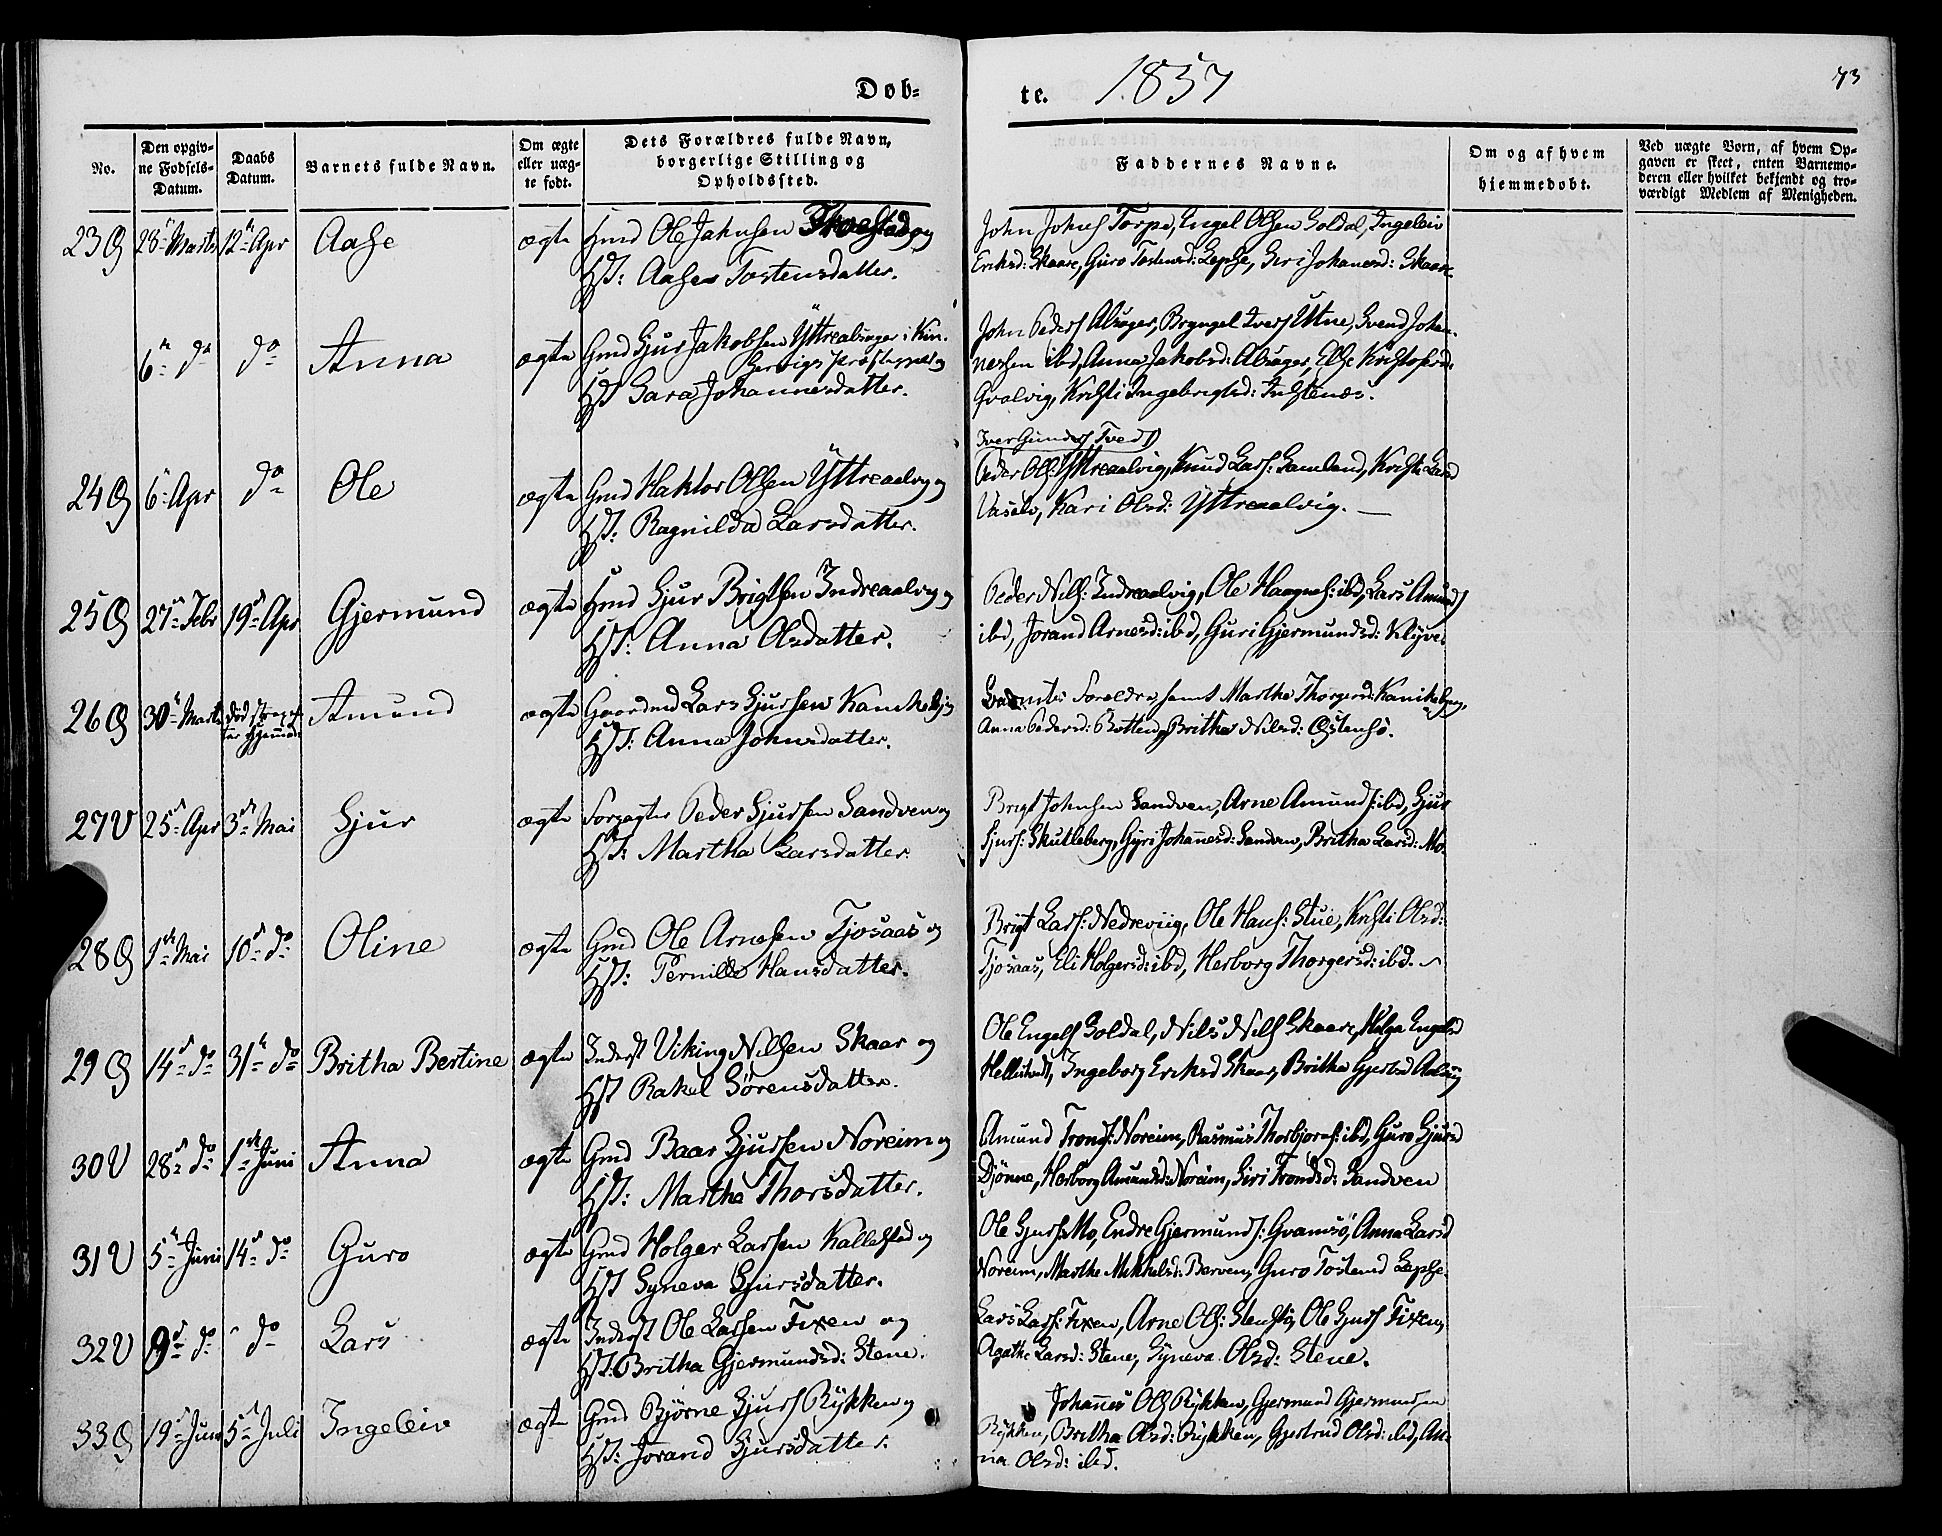 Døb-
te. 1857
73
No.
Den opgiv-
ne Fødsels-
Datum.
Daabs
Datum.
Barnets fulde Navn.
Om ægte
eller uæg-
te født.
Dets Forældres fulde Navn,
borgerlige Stilling og
Opholdssted.
Faddernes Navne.
Om og af hvem
hjemmedøbt.
Ved uægte Børn, af hvem Op-
gaven er skeet, enten Barnemo-
deren eller hvilket bekjendt og tro-
værdigt Medlem af Menigheden.
23 28 Marts 12 Apr Aase ægte Gmd Ole Johnsen og
Hst: Aase Tostensdatter.
John Johns Torpe, Engel Olsen Soldal, Ingeleiv
Eriksd: Skaare, Guro Tostensd: Lepse, Siri Johanesd: Skaare
6 do do Anna ægte Gmd Sjur Jakobsen Yttrealsager i Kin-
servigs præstegjeld og
Hst Sara Johannesdatter.
John Peders Alsager, Bryngel Ivers Utne, Svend Johan-
nessen ibd, Anna Jakobsd: Alsager, Else Kristofersd:
Qvalvig, Kristi Ingebrigtsd: Instenæs.
Iver Gunders Tvedt
24 6 Apr do Ole ægte Gmd Haktor Olsen Yttreaalvig og
Hst: Ragnilda Larsdatter.
Peder Ols: Yttreaalvig, Knud Lars: Samland, Kristi Larsd
Kari Olsd: Yttreaalvig. —
25 27 Febr 19 Apr Gjermund ægte Gmd Sjur Brigtsen Indreaalvig og
Hst: Anna Olsdatter.
Peder Nils: Indreaalvig, Ole Haagnes: ibd, Lars Amunds
ibd, Jorand Arnesd: ibd, Guri Gjermundsd: Klyve.
26 30 Marts død strax Amund ægte Gaardmd Lars Sjursen og
Hst: Anna Johnsdatter.
Forældre samt Martha Thorgersd:
Anna Pedersd: Botten, Britha Nilsd: Østensø.
27 V 25 Apr 3 Mai Sjur ægte Forpagter Peder Sjursen Sandven og
Hst: Martha Larsdatter.
Brigt Johnsen Sandven, Arne Amunds: ibd, Sjur
Sjurs: Skutleberg, Gyri Johannesd: Sandven, Britha Larsd: Mo.
28 1 Mai 10 do Oline ægte Gmd Ole Arnesen Tjosaas og
Hst: Pernille Hansdatter.
Brigt Lars: Nedreviig, Ole Hans: Stue, Kristi Olsd:
Tjosaas, Eli Holgersd: ibd, Herborg Thorgersd: ibd.
29 14 do 31 do Britha Bertine ægte Inderst Viking Nilsen Skaar og
Hst Rakel Sörensdatter.
Ole Engels Soldal, Nils Nils Skaare, Helga Engelsd
Ingeborg Eriksd Skaar, Britha
30 V 28 do 1 Juni Anna ægte Gmd Baar Sjursen Noreim og
Hst: Martha Thorsdatter.
Amund Tronds: Noreim, Rasmus Thorbjørns: ibd, Guro Sjursd
Djønne, Herborg Amundsd: Noreim, Siri Trondsd: Sandven
31 V 5 Juni 14 do Guro ægte Gmd Holger Larsen Kallestad og
Hst Syneva Sjursdatter.
Ole Sjurs: Mo, Endre Gjermunds: Qvamsö, Anna Larsd
Noreim, Marthe Mikkelsd: Berven, Guro Tostensd Lepse.
32 V 9 do do Lars ægte Inderst Ole Larsen Fixen og
Hst: Britha Gjermundsd: Stene.
Lars Lars: Fixen, Arne Ols: Ole Sjurs Fixen,
Agathe Larsd: Stene, Syneva Olsd: Stene.
33 19 Juni 5 Juli Ingeleiv ægte Gmd Bjørne Sjurs Rykken og
Hst: Jorand Sjursdatter.
Johannes Ols Rykken, Gjermund Gjermundsen
Rykken, Britha Olsd: Rykken, Gjertrud Olsd: ibd, An-
na Olsd: ibd.